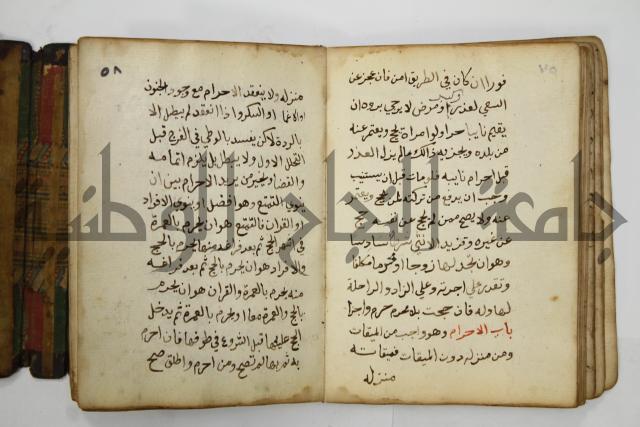 فورا ان كان في الطريق امن فان عجز عن
السعي لعذر كبر او مرض لا يرجي برؤه ان
يقيم نايبا حرا ولو امراة يحج ويعتمر عنه
من بلده ويجزيه ذالك ما لم يزل العذر
قبل احرام نايبه فلو مات قبل ان يستنيب
وجب ان يدفع من تركته لمن يحج ويعتمر
عنه ولا يصح ممن لم يحج عن نفسه حج
عن غيره وتزيد الانثي شرطا سادسا
وهو ان تجد لها زوجا او محرما مكلفا
وتقدر علي اجرته وعلي الزاد والراحلة
لها وله فان حجت بلا محرم حرم واجزا
باب الاحرام وهو واجب من الميقات
ومن منزله دون الميقات فميقاته
منزله
٥٨
منزله ولا ينعقد الاحرام مع وجود الجنون
او الاغما او السكر واذا انعقد لم يبطل الا
بالردة لاكن يفسد بالوطي في الفرج قبل
التحلل الاول ولا يبطل بل يلزم اتمامه
والقضا ويخير من يريد الاحرام بين ان
ينوي التمتع وهو افضل او ينوي الافراد
او القران فالتمتع هو ان يحرم بالعمرة
في اشهر الحج ثم بعد فراغه منها يحرم بالحج
والافراد هو ان يحرم بالحج ثم بعد فراغه
منه يحرم بالعمرة والقران هو ان يحرم
بالحج والعمرة معا او يحرم بالعمرة ثم يدخل
الحج عليها قبل الشروع في طوفها فان احرم
به ثم بها لم تصح ومن احرم واطلق صح
جامعة النجاح الوطنية